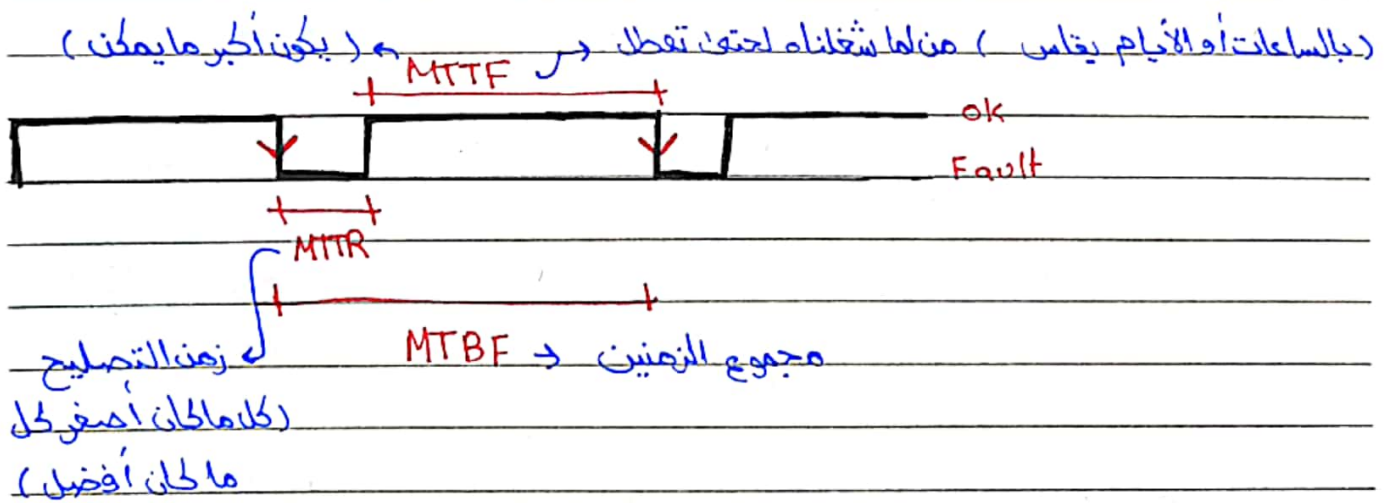 (بالساعات أو الأيام يقاس) من لما شغلناه لحتى تعطل → (يكون أكبر ما يمكن)
MTTF
ok
Fault
MTTR
زمن التصليح
MTBF → مجموع الزمنين
(كل ما كان أصغر كل
ما كان أفضل)